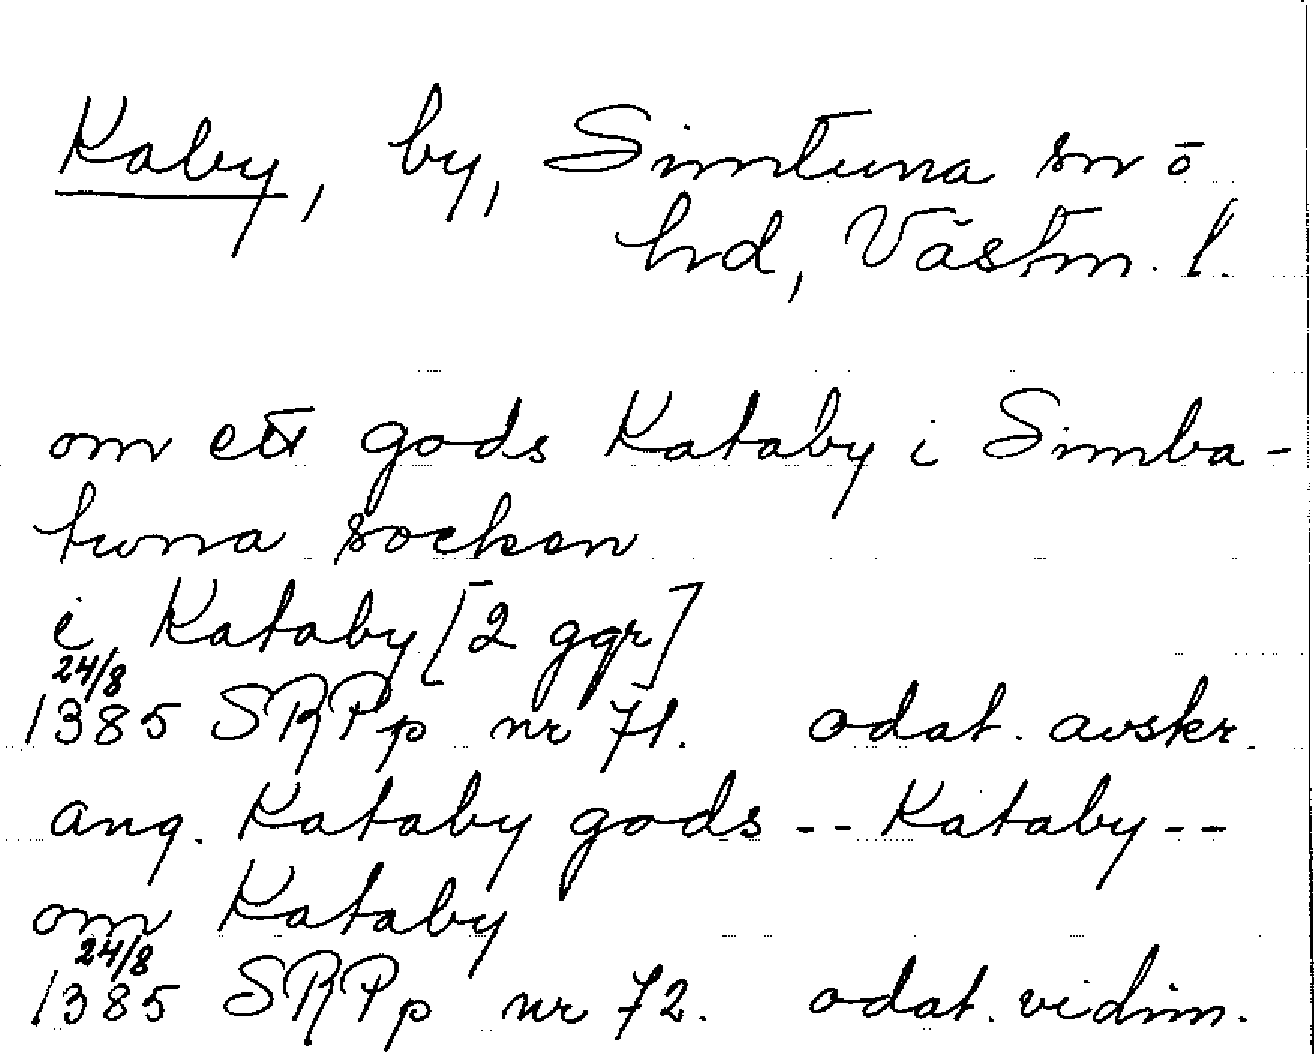 Kaby, by, Simtuna sn o
hd, Västm. l.
om ett gods Kataby i Simba-
tuna socken
i Kataby [2 ggr]
24/8
1385 SRPp nr 71. odat. avskr.
ang. Kataby gods -- Kataby --
om Kataby
24/8
1385 SRPp nr 72. odat. vidim.